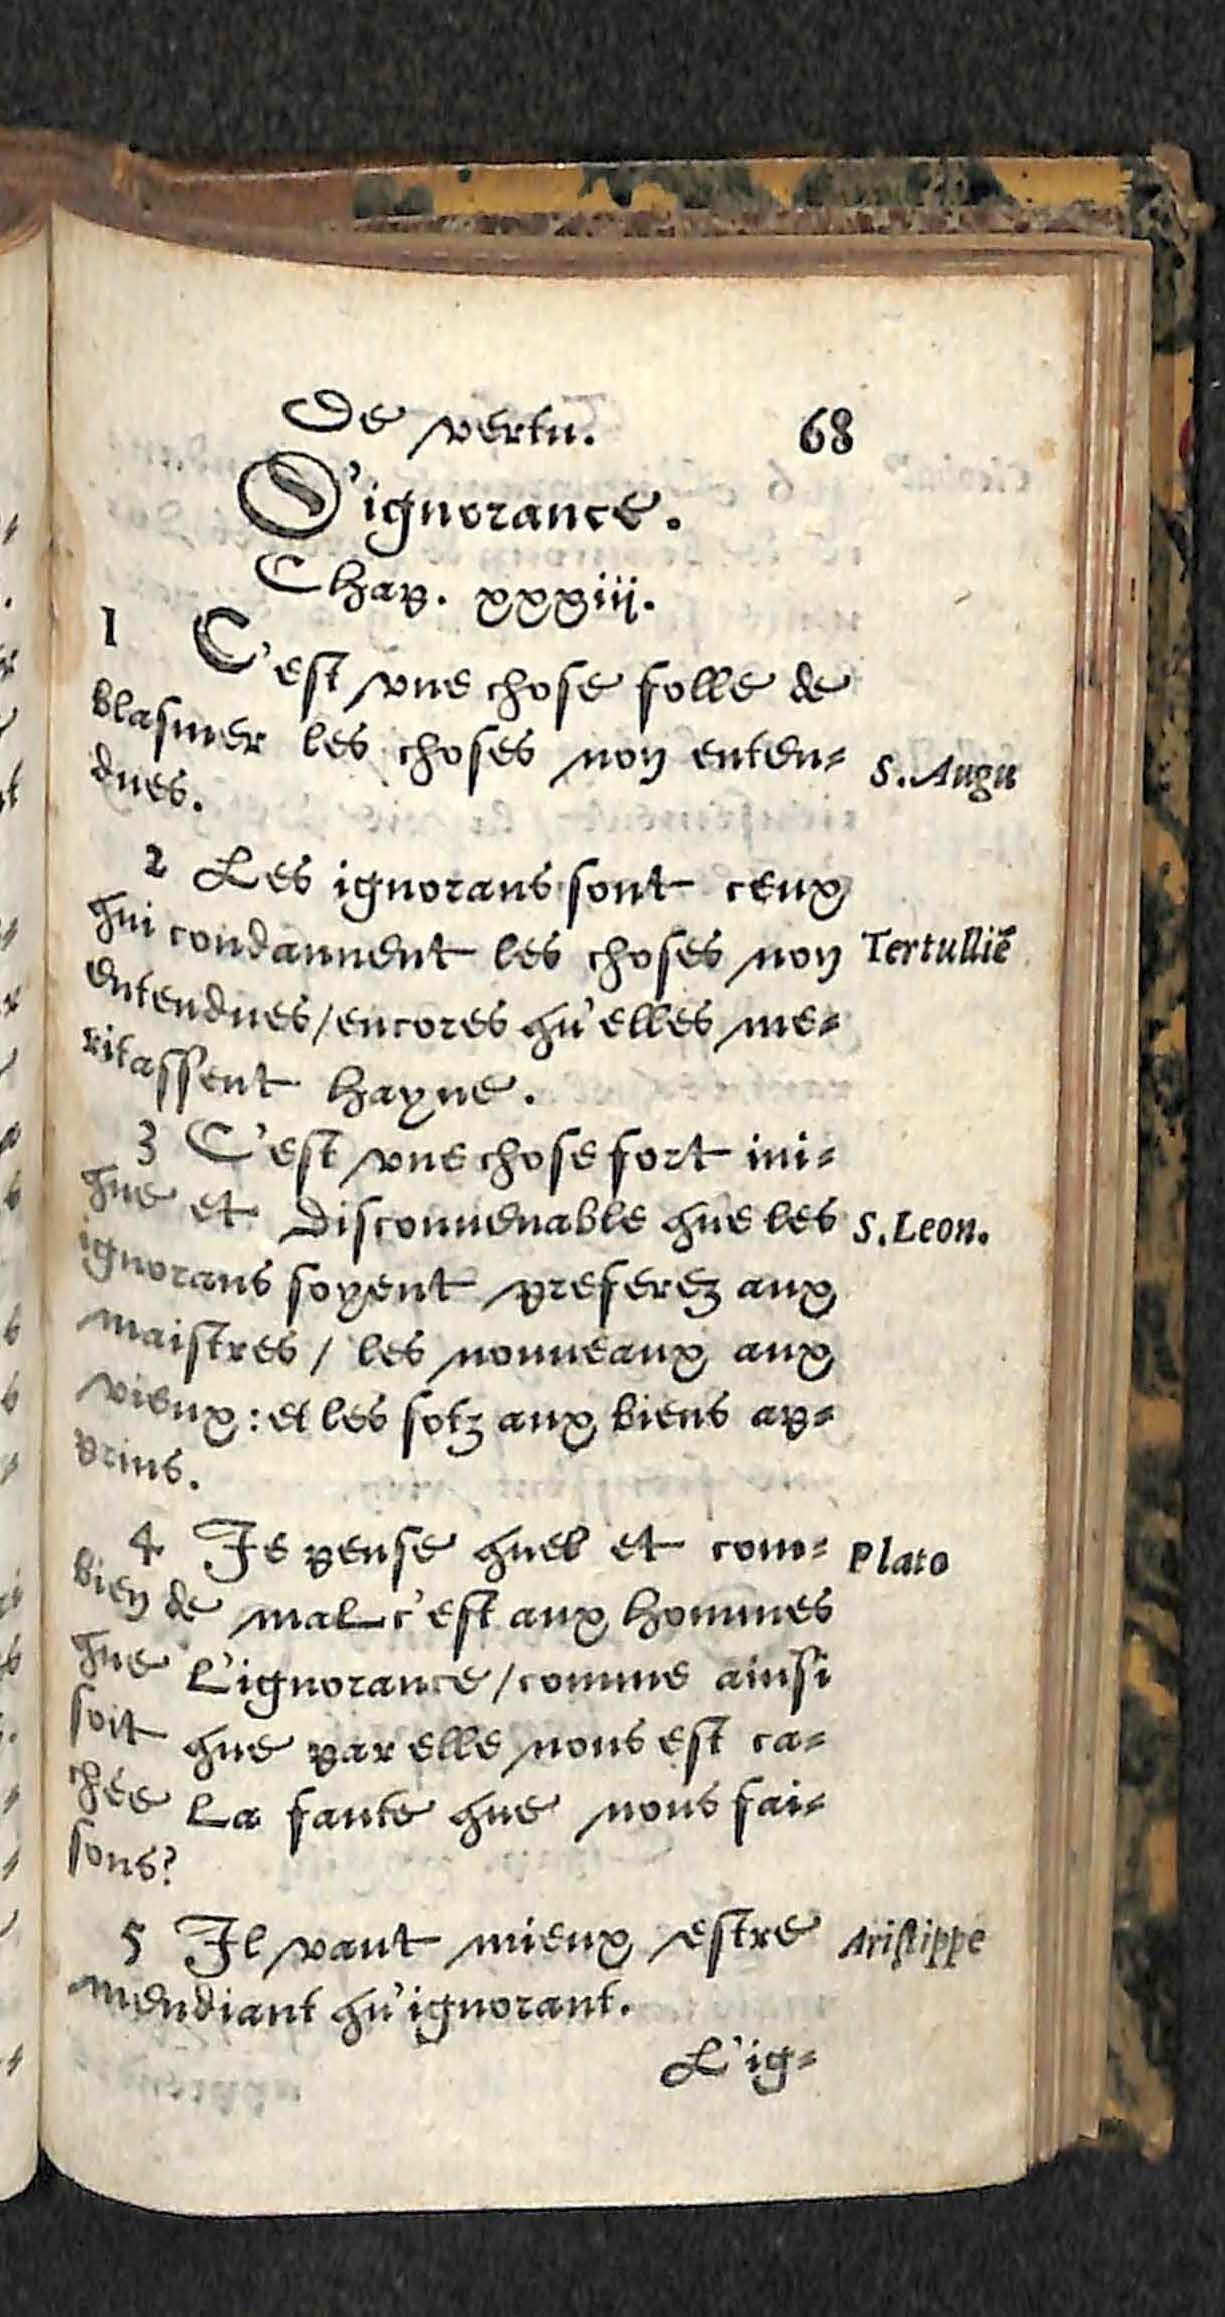 De vertu. 68
D'ignorance.
Chap. xxxiij.
1 C'est vne chose folle de
blasmer les choses non enten-
dues.
S. Augu
2 Les ignorans sont ceux
qui condannent les choses non
Tertulliẽ
entendues/encores qu'elles me-
ritassent hayne.
3 C'est vne chose fort ini-
que et disconuenable que les
S. Leon.
ignorans soyent preferez aux
maistres/ les nouueaux aux
vieux: et les sotz aux biens ap-
prins.
4 Je pense quel et com-
Plato
bien de mal c'est aux hommes
que l'ignorance/comme ainsi
soit que par elle nous est ca-
chée la faute que nous fai-
sons?
5 Il vaut mieux estre
Aristippe
mendiant qu'ignorant.
L'ig-